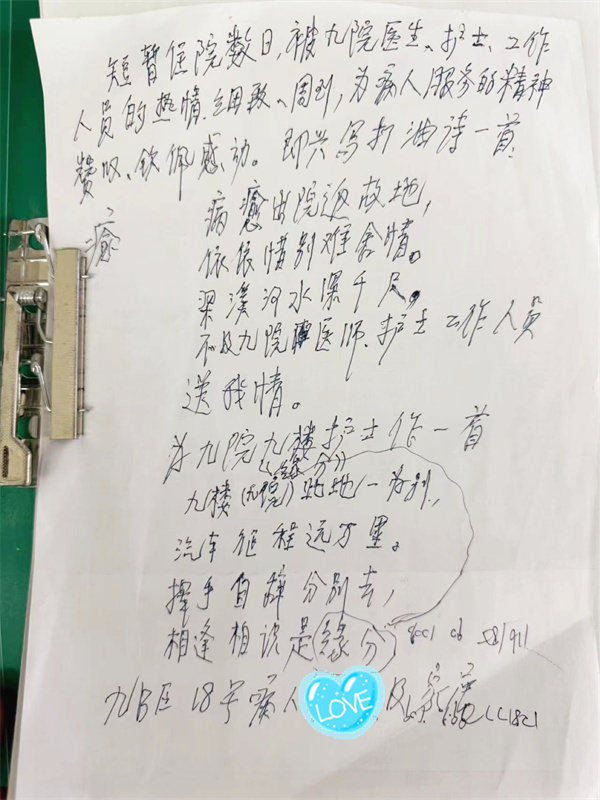 短暂住院数日,被九院医生、护士、工作
人员的热情、细致、周到,为病人服务的精神
赞叹、钦佩感动。即兴写打油诗一首:
病愈出院返故地,
瘉
依依惜别难舍情。
梁溪河水深千尺。
不及九院医师、护士工作人员
送我情。
为九院九楼护士作一首
(缘分)
九楼(九院)此地一为别,
汽车征程远万里。
挥手自辞分别去,
相逢相识是缘分
九B区18号病人
LOVE
及家属